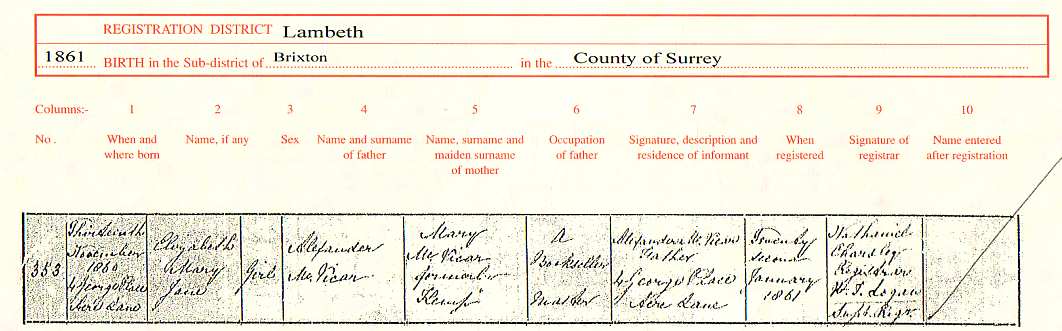 REGISTRATION DISTRICT Lambeth
1861 BIRTH in the Sub-district of Brixton in the County of Surrey
Columns:- 1 2 3 4 5 6 7 8 9 10
No. When and where born Name, if any Sex Name and surname of father Name, surname and maiden surname of mother Occupation of father Signature, description and residence of informant When registered Signature of registrar Name entered after registration
353
Thirteenth
November
1860
4 George Place
Acre Lane
Elizabeth
Mary
Jane
Girl
Alexander
McVicar
Mary
McVicar
formerly
Kemp
A
Bookseller
Master
Alexander McVicar
Father
4 George Place
Acre Lane
Twenty
second
January
1861
Nathaniel
Registrar
W. T. Logan
Supt. Regr.